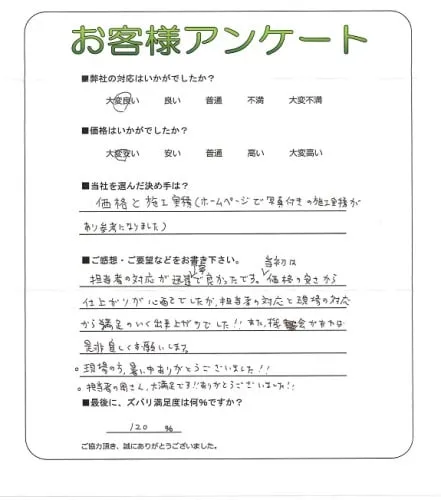 お客様アンケート
■弊社の対応はいかがでしたか?
大変良い 良い 普通 不満 大変不満
■価格はいかがでしたか?
大変安い 安い 普通 高い 大変高い
■当社を選んだ決め手は?
価格と施工実績(ホームページで写真付きの施工実績が
あり参考になりました)
■ご感想・ご要望などをお書き下さい。
担当者の対応が迅速で良かったです。当初は価格の安さから
仕上がりが心配でしたが、担当者の対応と現場の対応
から満足のいく出来上がりでした!!また、機会があれば
是非宜しくお願いします。
○現場の方、暑い中ありがとうございました!!
○担当者の岡さん、大満足です!!ありがとうございました!!
■最後に、ズバリ満足度は何%ですか?
120 %
ご協力頂き、誠にありがとうございました。